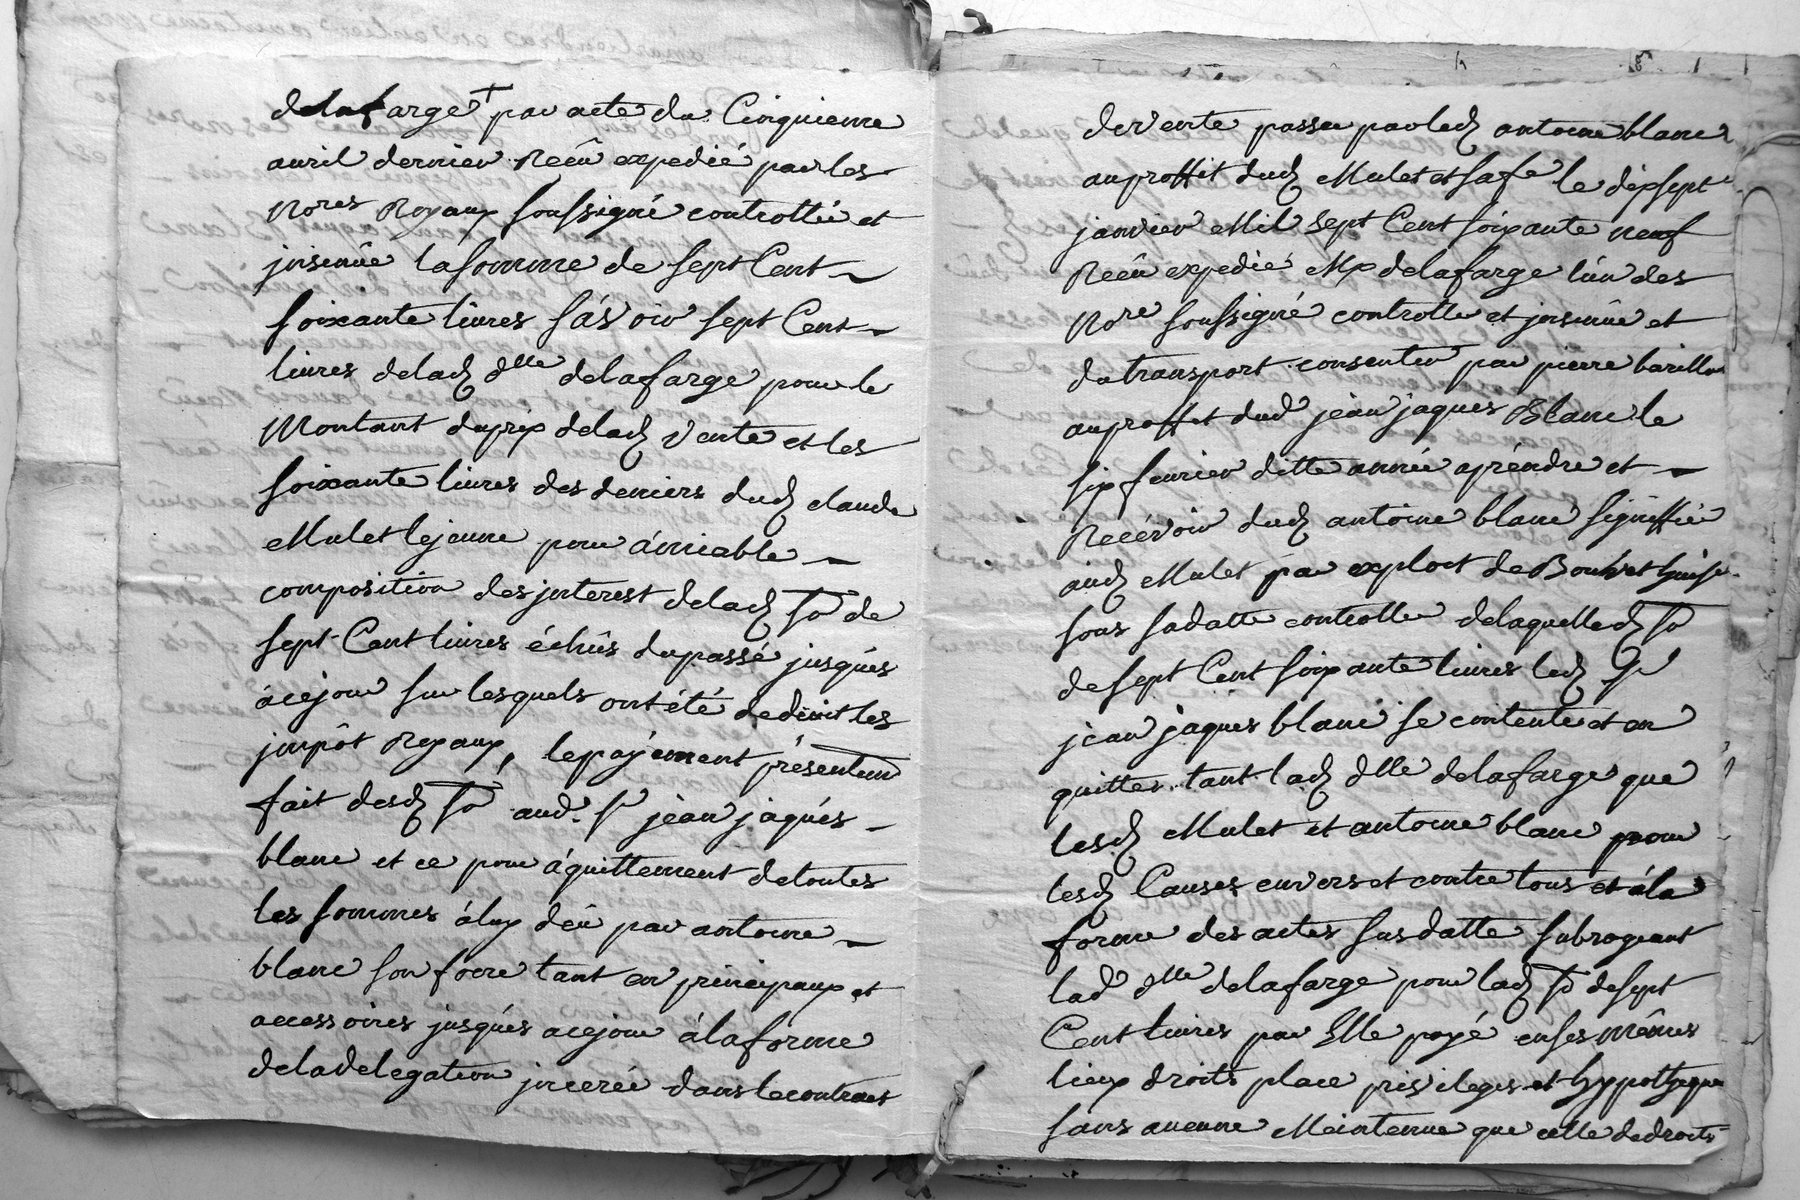 delafarge + par acte du Cinquieme
avril dernier Reçû expedié par les
No.res Royaux soussigné controllée et
insinuée lasomme de sept Cent
soixante livres sávoir sept Cent
livres delad dlle delafarge pour le
Montant duprix delad vente et les
soixante livres des deniers dud claude
Mulet lejeune pour ámiable
composition desinterest delad so de
sept Cent livres échûs dupassé jusqués
ácejour sur lesquels ont été dedüit les
impôt Royaux, lepayément présentem
fait desd so aud sr jéan jaqués
blanc et ce pour áquittement detoutes
les sommes áluy deû par antoine
blanc son frere tant en principaux et
accessoires jusqués acejour álaforme
deladelegation inceréé dans lecontract
devente passée parled antoine blanc
auproffit dud Mulet et safe le dixsept
janvier Mil sept Cent soixante neuf
Reçû expedié Me delafarge l'ún des
Nore soussigné controlle et insinuée et
du transport consenti par pierre barillo
auproffit dud jéan jaques Blanc le
six fevrier ditte année apréndre et
Recévoir dud antoine blanc signiffié
aud Mulet par exploit de
sous sadatte controlle delaquelled so
de sept Cent soixante livres led Sr
jean jaques blanc se contente et en
quitte tant lad dlle delafarge que
lesd Mulet et antoine blanc pour
lesd Causes envers et contre tous et ála
forme des actes susdatte subrogeant
lad dlle delafarge pour lad so de sept
Cent livres par Elle payé enses Mêmes
lieux droits place privileges et hypotheque
sans aucune Maintenue que celle dedroits